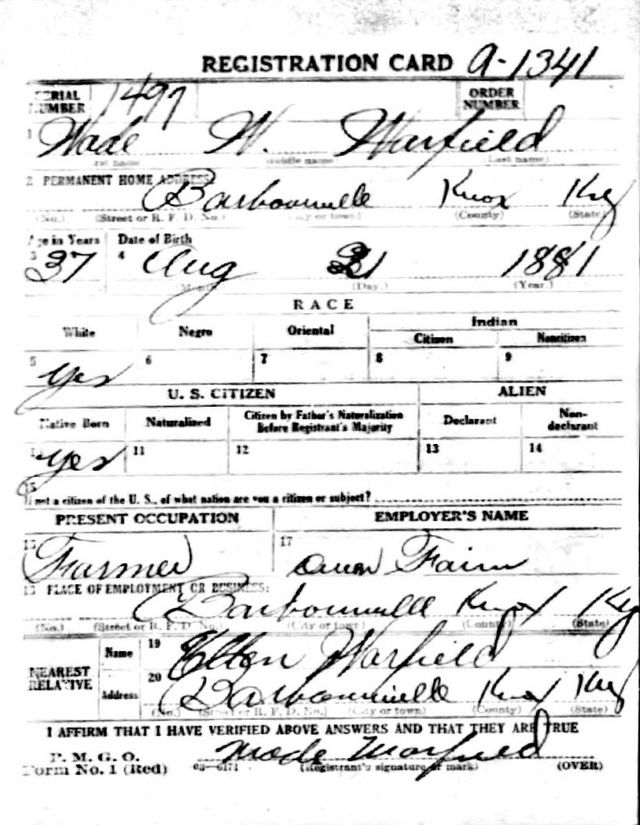 REGISTRATION CARD A-1341
SERIAL NUMBER 1497 ORDER NUMBER
1 Wade W. Warfield
(First name) (Middle name) (Last name)
2 PERMANENT HOME ADDRESS:
Barbourville Knox Ky
(No.) (Street or R. F. D. No.) (City or town) (County) (State)
Age in Years Date of Birth
3 37 4 Aug 31 1881
(Month.) (Day.) (Year.)
RACE
White Negro Oriental Indian
Citizen Noncitizen
5 Yes 6 7 8 9
U. S. CITIZEN ALIEN
Native Born Naturalized Citizen by Father's Naturalization Before Registrant's Majority Declarant Non-declarant
10 Yes 11 12 13 14
15
If not a citizen of the U. S., of what nation are you a citizen or subject?
PRESENT OCCUPATION EMPLOYER'S NAME
16 Farmer 17 Own Farm
18 PLACE OF EMPLOYMENT OR BUSINESS:
Barbourville Knox Ky
(No.) (Street or R. F. D. No.) (City or town) (County) (State)
NEAREST RELATIVE
Name 19 Ellen Warfield
Address 20 Barbourville Knox Ky
(No.) (Street or R. F. D. No.) (City or town) (County) (State)
I AFFIRM THAT I HAVE VERIFIED ABOVE ANSWERS AND THAT THEY ARE TRUE
P. M. G. O.
Wade Warfield
Form No. 1 (Red) 03-6171 (Registrant's signature or mark) (OVER)